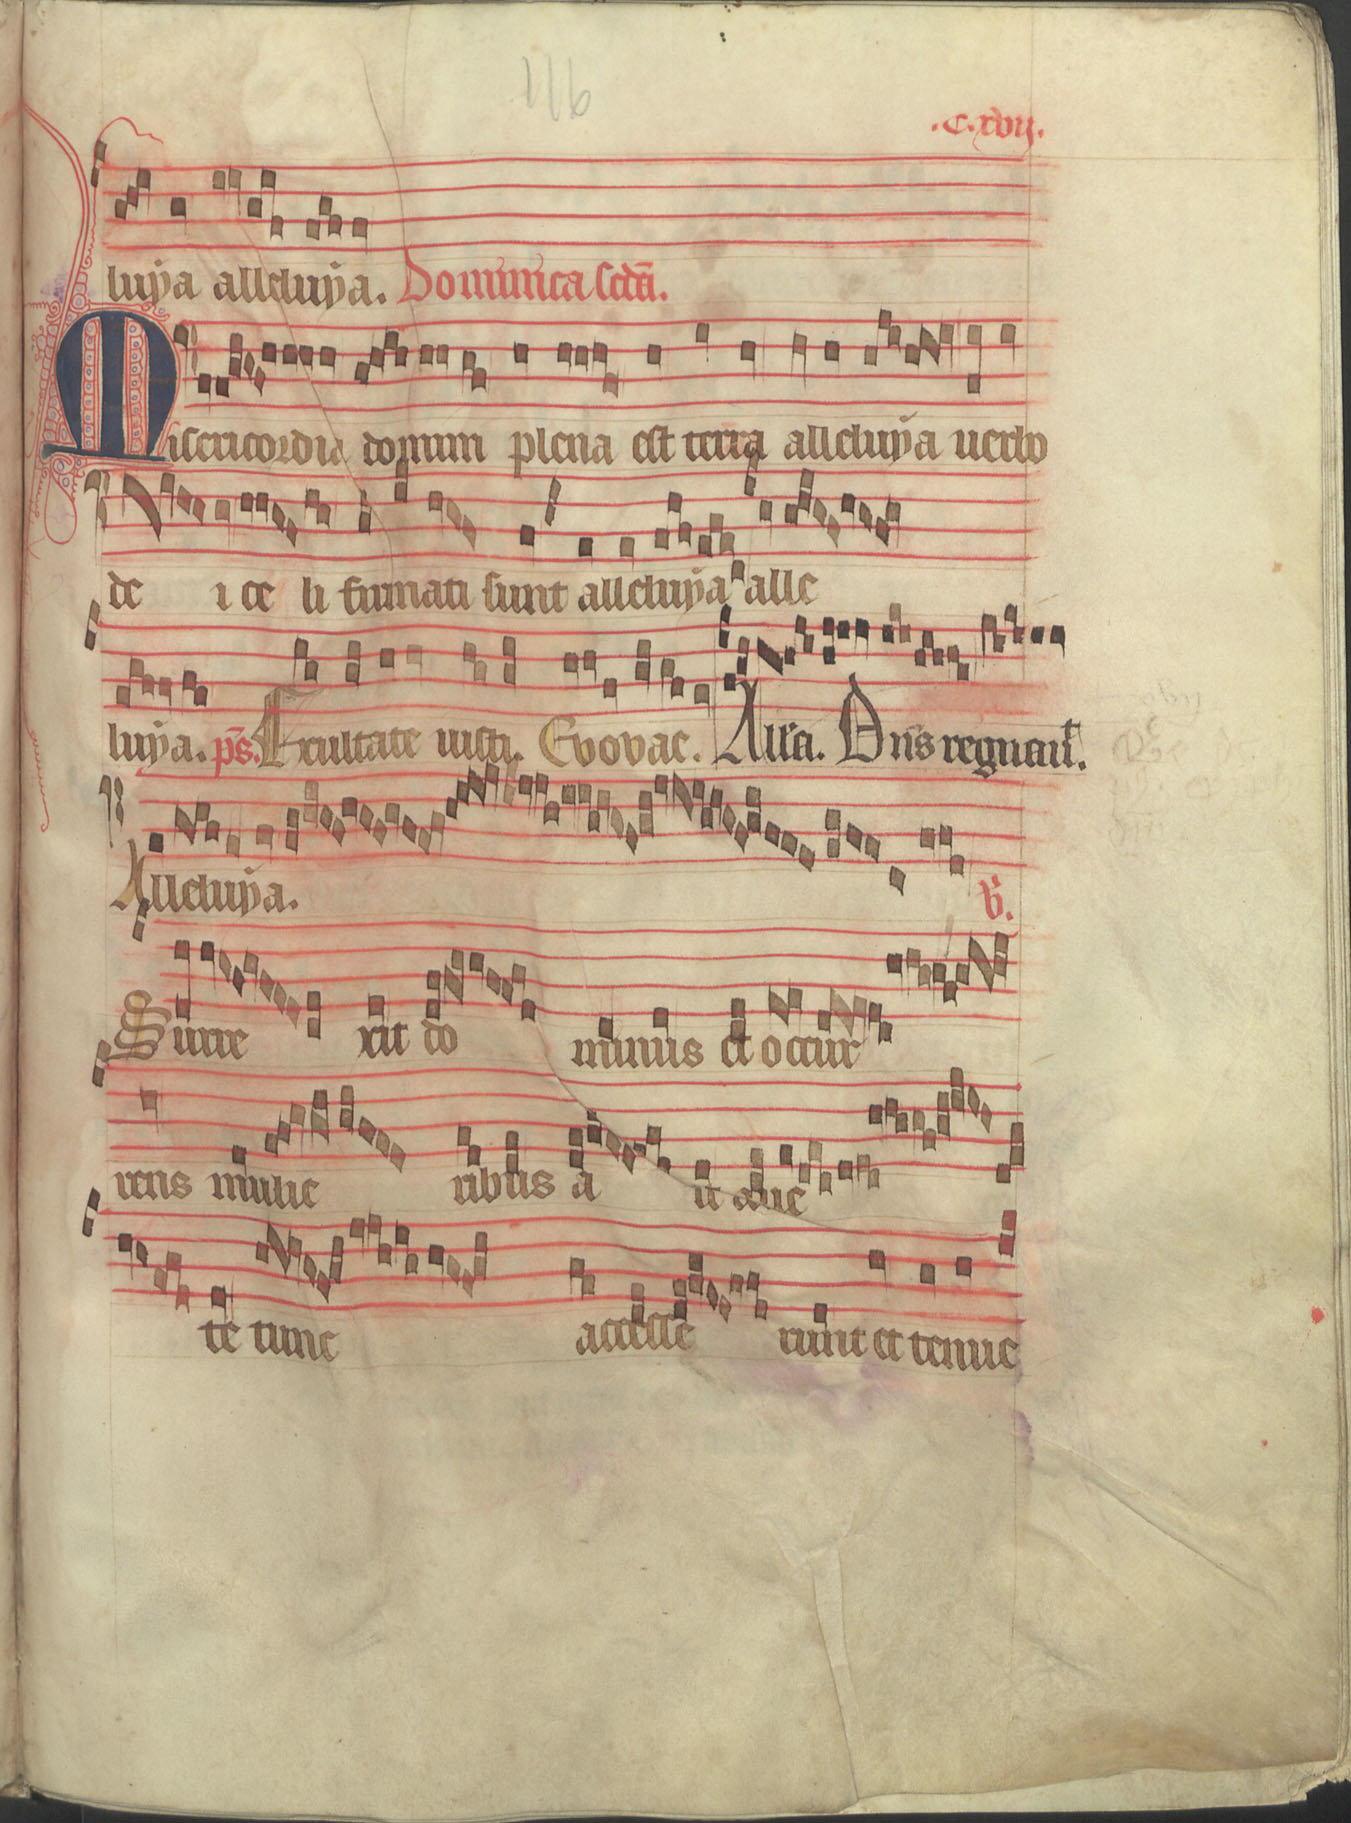 116
.C.xvij.
luÿa alleluÿa. Dominica scda.
Misericordia domini plena est terra alleluÿa uerbo
de i ce li firmati sunt alleluÿa alle
luÿa. ps. Exultate iusti. Evovae. Alla. Dns regnauit.
Alleluÿa. V.
Surre xit do minus et occur
rens mulie ribus a it aue
te tunc accesse runt et tenue